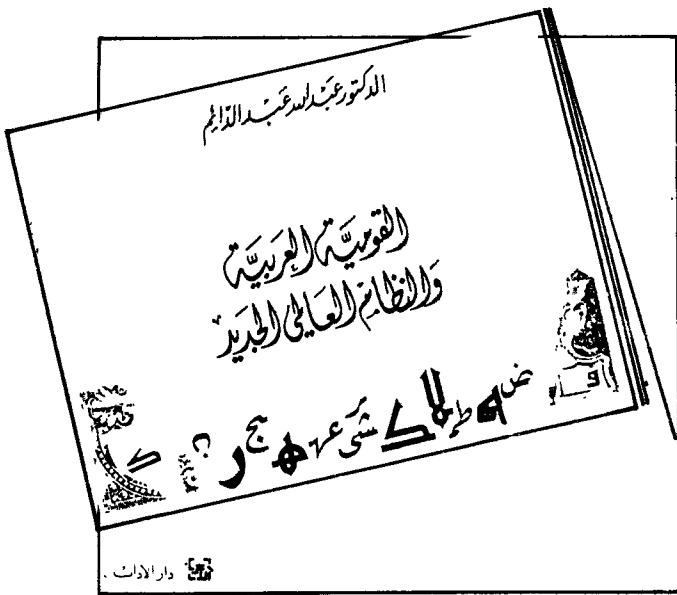 الدكتور عبد الله عبد الدائم
القوميَّة العربيَّة
والنظام العالمي الجديد
دار الآداب